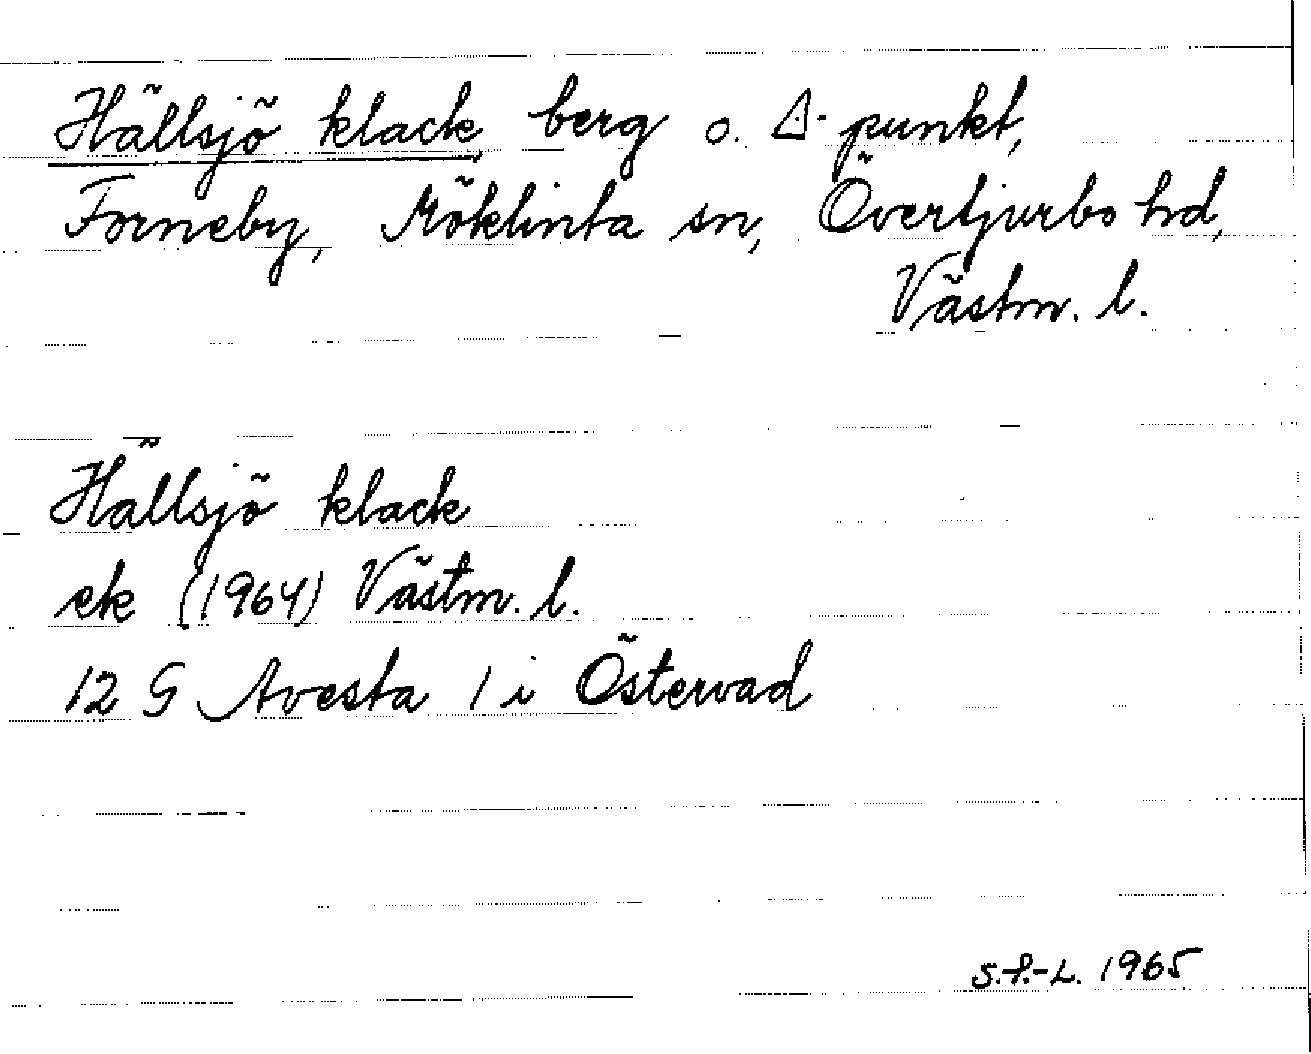 Hällsjö klack, berg o. △-punkt,
Forneby, Möklinta sn, Övertjurbo hd,
Västm. l.
Hällsjö klack
ek (1964) Västm. l.
12 G Avesta 1 i Östervad
S.P.-L. 1965